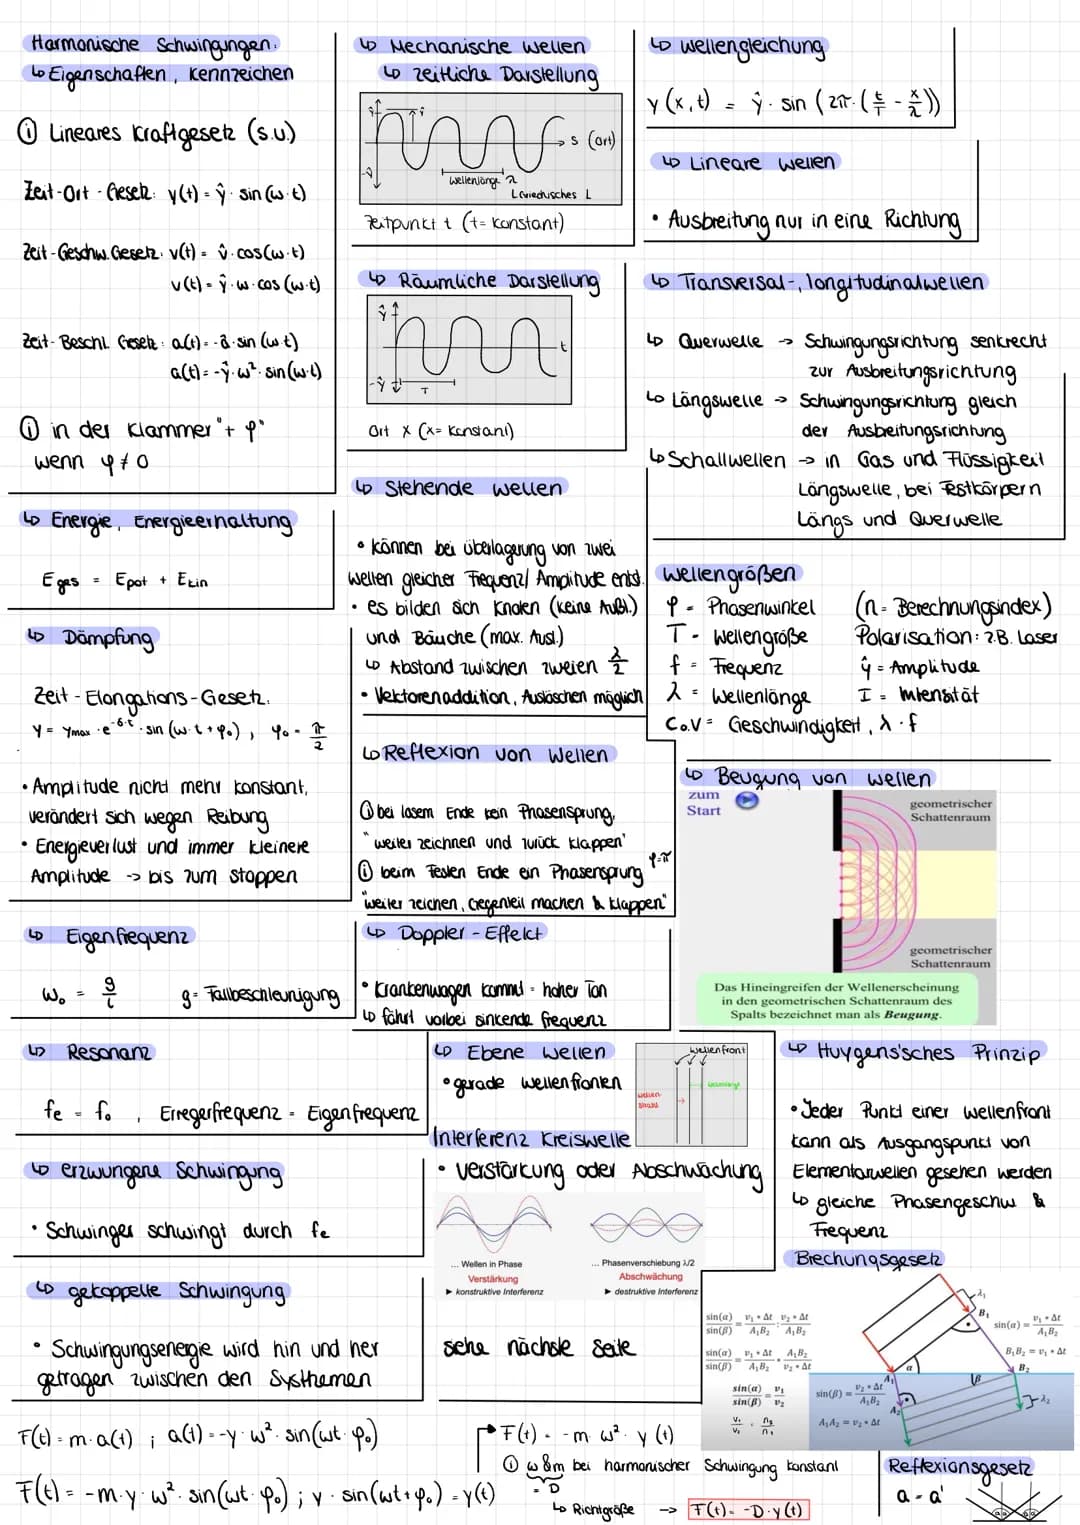 Harmonische Schwingungen.
↳ Eigenschaften, Kennzeichen
ⓘ Lineares Kraftgesetz (s.u.)
Zeit-Ort-Gesetz: y(t) = ŷ · sin(ω·t)
Zeit-Geschw. Gesetz: v(t) = v̂ · cos(ω·t)
v(t) = ŷ · ω · cos(ω·t)
Zeit-Beschl. Gesetz: a(t) = -â · sin(ω·t)
a(t) = -ŷ · ω² · sin(ω·t)
ⓘ in der Klammer "+ φ"
wenn φ ≠ 0
↳ Energie, Energieerhaltung
Eges = Epot + Ekin
↳ Dämpfung
Zeit-Elongations-Gesetz.
y = ymax · e^-δ·t · sin(ω·t + φ₀), φ₀ = π/2
• Amplitude nicht mehr konstant,
verändert sich wegen Reibung
• Energieverlust und immer kleinere
Amplitude -> bis zum stoppen
↳ Eigenfrequenz
ω₀ = g/l g = Fallbeschleunigung
↳ Resonanz
fe = f₀, Erregerfrequenz = Eigenfrequenz
↳ erzwungene Schwingung
• Schwinger schwingt durch fe
↳ gekoppelte Schwingung
• Schwingungsenergie wird hin und her
getragen zwischen den Systhemen
F(t) = m·a(t) ; a(t) = -y · ω² · sin(ωt · φ₀)
F(t) = -m·y·ω² · sin(ωt · φ₀) ; y · sin(ωt+φ₀) = y(t)
↳ Mechanische Wellen
↳ zeitliche Darstellung
ŷ
ŷ
-ŷ
s (Ort)
Wellenlänge λ
L Griechisches L
Zeitpunkt t (t = konstant)
↳ Räumliche Darstellung
ŷ
t
-ŷ
T
Ort x (x = konstant)
↳ Stehende Wellen
• können bei Überlagerung von zwei
Wellen gleicher Frequenz/Amplitude entst.
• es bilden sich Knoten (keine Ausl.)
und Bäuche (max. Ausl.)
↳ Abstand zwischen zweien λ/2
• Vektorenaddition, Auslöschen möglich
↳ Reflexion von Wellen
ⓘ bei losem Ende kein Phasensprung,
"weiter zeichnen und zurück klappen"
ⓘ beim Festen Ende ein Phasensprung φ=π
"weiter zeichen, Gegenteil machen & klappen"
↳ Doppler-Effekt
• Krankenwagen kommt = hoher Ton
↳ fährt vorbei sinkende Frequenz
↳ Ebene Wellen
• gerade Wellenfronten
Wellenfront
Wellen-
strahl
Wellenlänge
Interferenz Kreiswelle
• Verstärkung oder Abschwächung
... Wellen in Phase
Verstärkung
► konstruktive Interferenz
... Phasenverschiebung λ/2
Abschwächung
► destruktive Interferenz
sehe nächste Seite
F(t) = -m·ω²·y(t)
ⓘ ω & m bei harmonischer Schwingung konstant
= D
↳ Richtgröße -> F(t) = -D·y(t)
↳ Wellengleichung
y(x,t) = ŷ · sin(2π·(t/T - x/λ))
↳ Lineare Wellen
• Ausbreitung nur in eine Richtung
↳ Transversal-, longitudinalwellen
↳ Querwelle -> Schwingungsrichtung senkrecht
zur Ausbreitungsrichtung
↳ Längswelle -> Schwingungsrichtung gleich
der Ausbeitungsrichtung
↳ Schallwellen -> in Gas und Flüssigkeit
Längswelle, bei Festkörpern
Längs und Querwelle
Wellengrößen
φ = Phasenwinkel (n = Berechnungsindex)
T = Wellengröße Polarisation: z.B. Laser
f = Frequenz ŷ = Amplitude
λ = Wellenlänge I = Intensität
c o. v = Geschwindigkeit, λ · f
↳ Beugung von Wellen
zum
Start
geometrischer
Schattenraum
geometrischer
Schattenraum
Das Hineingreifen der Wellenerscheinung
in den geometrischen Schattenraum des
Spalts bezeichnet man als Beugung.
↳ Huygens'sches Prinzip
• Jeder Punkt einer Wellenfront
kann als Ausgangspunkt von
Elementarwellen gesehen werden
↳ gleiche Phasengeschw &
Frequenz
Brechungsgesetz
sin(α)/sin(β) = v₁ • Δt / A₁B₂ : v₂ • Δt / A₁B₂
sin(α)/sin(β) = v₁ • Δt / A₁B₂ • A₁B₂ / v₂ • Δt
sin(α)/sin(β) = v₁/v₂
v₁/v₂ = n₂/n₁
sin(α) = v₁ • Δt / A₁B₂
B₁B₂ = v₁ • Δt
sin(β) = v₂ • Δt / A₁B₂
A₁A₂ = v₂ • Δt
λ₁
B₁
α
A₁
β
B₂
A₂
λ₂
Reflexionsgesetz
a = a'